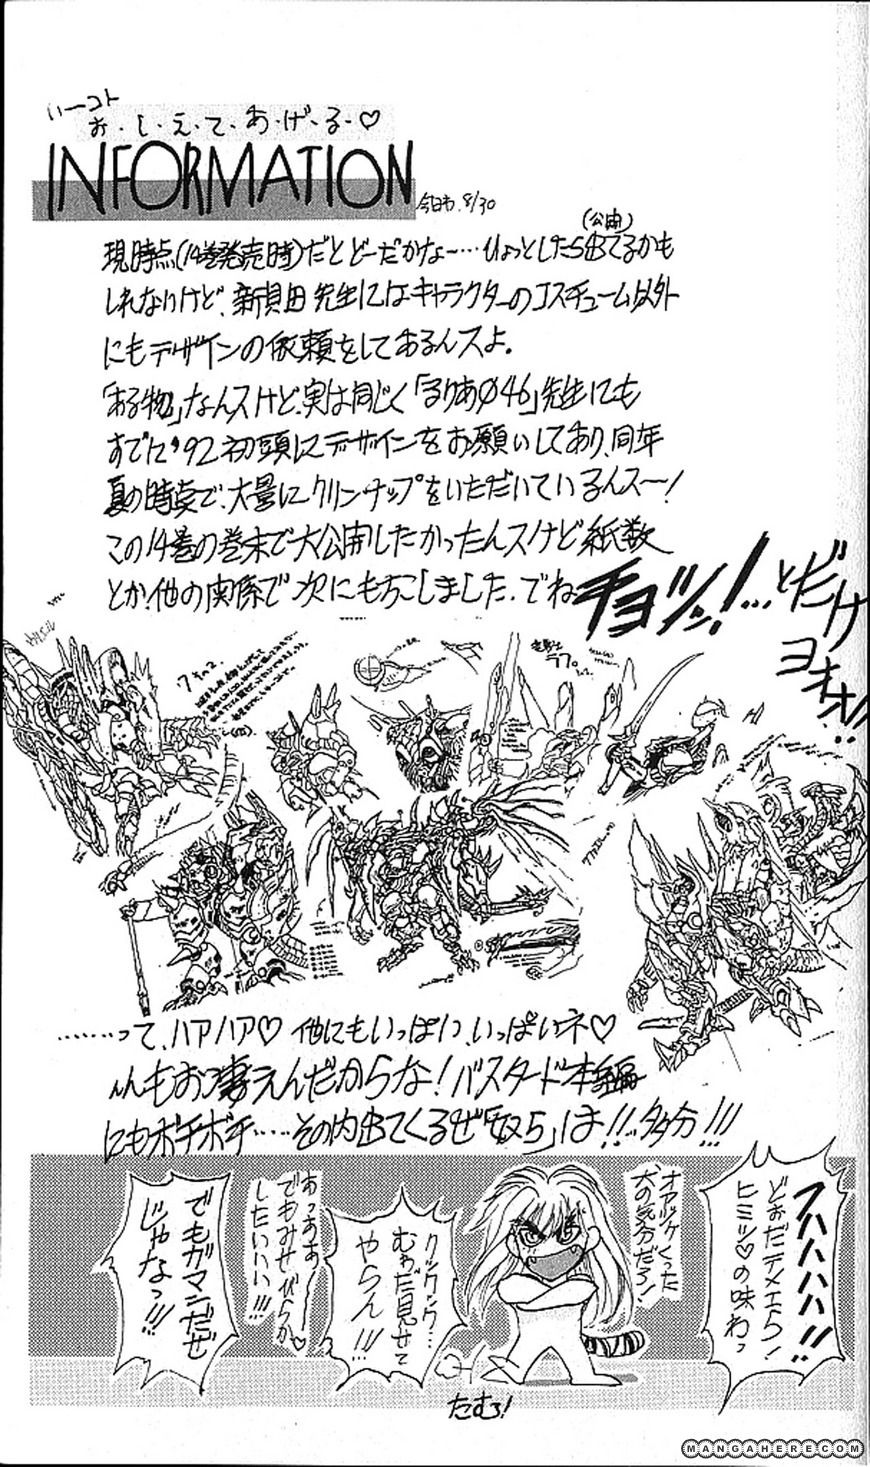 いーコト
お・し・え・て・あ・げ・る・♡
INFORMATION
今日わ、8/30
(公曲)
現時点(14巻発売時)だとどーだかな〜…ひょっとしたら出てるかも
しれないけど、新貝田先生にはキャラクターのコスチューム以外
にもデザインの依頼をしてあるんスよ。
「ある物」なんスけど、実は同じく「るりあ046」先生にも
すでに'92初頭にデザインをお願いしてあり、同年
夏の時点で、大量にクリンナップをいただいているんス〜!
この14巻の巻末で大公開したかったんスけど紙数
とか他の関係で次にもちこしました。でね
チョッ!…とだけ
ヨオオ!!
………って、ハアハア♡ 他にもいっぱい、いっぱいネ♡
んもおっ凄えんだからな!バスタード本編
にもボチボチ……その内出てくるぜ「奴ら」は!!…多分!!!
フハハハハ!!
どおだテメエら!
ヒミツ♡の味わっ
オアズケくった
犬の気分だろ!
クックック…
むぁだ見せて
やらん!!!
あっああ——
でもみせびらか♡
したいいい!!!
でもガマンだぜ
じゃなっ!!!
たむろ!
MANGAHERE.COM